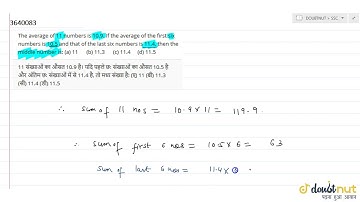 DOUBTNUT - SSC
3640083
The average of 11 numbers is 10.9. If the average of the first six
numbers is 10.5 and that of the last six numbers is 11.4, then the
middle number is: (a) 11 (b) 11.3 (c) 11.4 (d) 11.5
11 संख्याओं का औसत 10.9 है। यदि पहले छः संख्याओं का औसत 10.5 है
और अंतिम छः संख्याओं में से 11.4 है, तो मध्य संख्या है: (ए) 11 (बी) 11.3
(सी) 11.4 (डी) 11.5
∴ Sum of 11 nos = 10.9 × 11 = 119.9
∴ Sum of first 6 nos = 10.5 × 6 = 63
Sum of last 6 nos = 11.4 ×
doubtnut